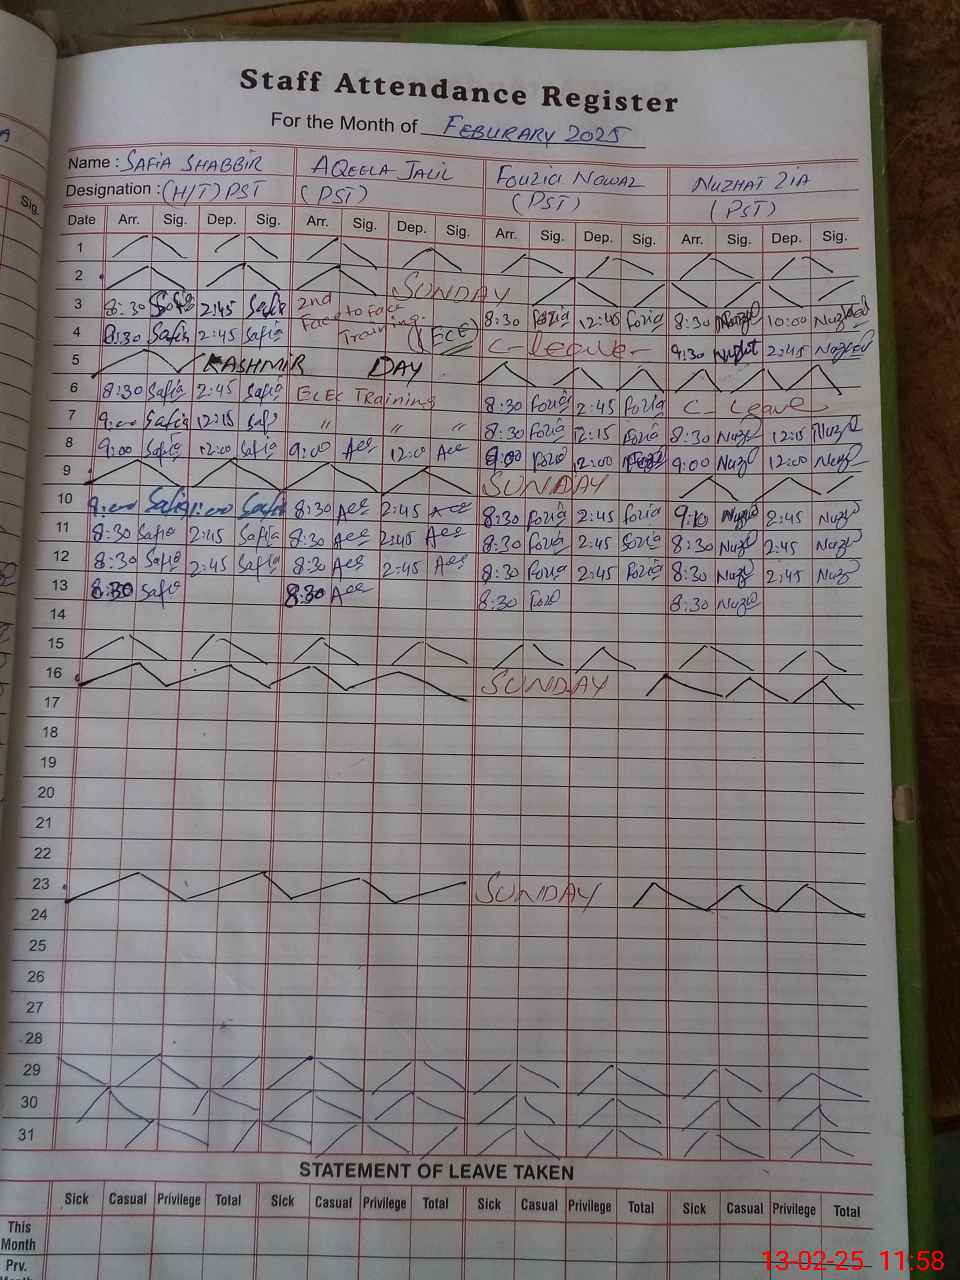 Staff Attendance Register
For the Month of FEBURARY 2025
Name : SAFIA SHABBIR AQEELA JALIL FOUZIA NAWAZ NUZHAT ZIA
Designation : (H/T) PST (PST) (PST) (PST)
Sig.
Date Arr. Sig. Dep. Sig. Arr. Sig. Dep. Sig. Arr. Sig. Dep. Sig. Arr. Sig. Dep. Sig.
1
2 SUNDAY
3 8:30 Safia 2:45 Safia 2nd Face to Face 8:30 fozia 12:45 fozia 8:30 10:00
4 8:30 Safia 2:45 Safia Training. (ECE) C-leave- 9:30 2:45
5 KASHMIR DAY
6 8:30 Safia 2:45 Safia Training 8:30 fozia 2:45 fozia C- Leave
7 9:00 Safia 12:15 Saf " " " 8:30 fozia 12:15 fozia 8:30 Nuzh 12:15 Nuzh
8 9:00 Safia 12:00 Safia 9:00 Aee 12:00 Aee 9:00 Fozi 12:00 9:00 Nuzh 12:00 Nuzh
9 SUNDAY
10 9:00 Safia 1:00 Safia 8:30 Aee 2:45 Aee 8:30 fozia 2:45 fozia 9:10 Nuzh 2:45 Nuzh
11 8:30 Safia 2:45 Safia 8:30 Aee 2:45 Aee 8:30 fozia 2:45 fozia 8:30 Nuzh 2:45 Nuzh
12 8:30 Safia 2:45 Safia 8:30 Aee 2:45 Aee 8:30 Fozia 2:45 Fozia 8:30 Nuzh 2:45 Nuzh
13 8:30 Safia 8:30 Aee 8:30 Fozi 8:30 Nuzh
14
15
16 SUNDAY
17
18
19
20
21
22
23 SUNDAY
24
25
26
27
28
29
30
31
STATEMENT OF LEAVE TAKEN
Sick Casual Privilege Total Sick Casual Privilege Total Sick Casual Privilege Total Sick Casual Privilege Total
This
Month
Prv.
13-02-25 11:58